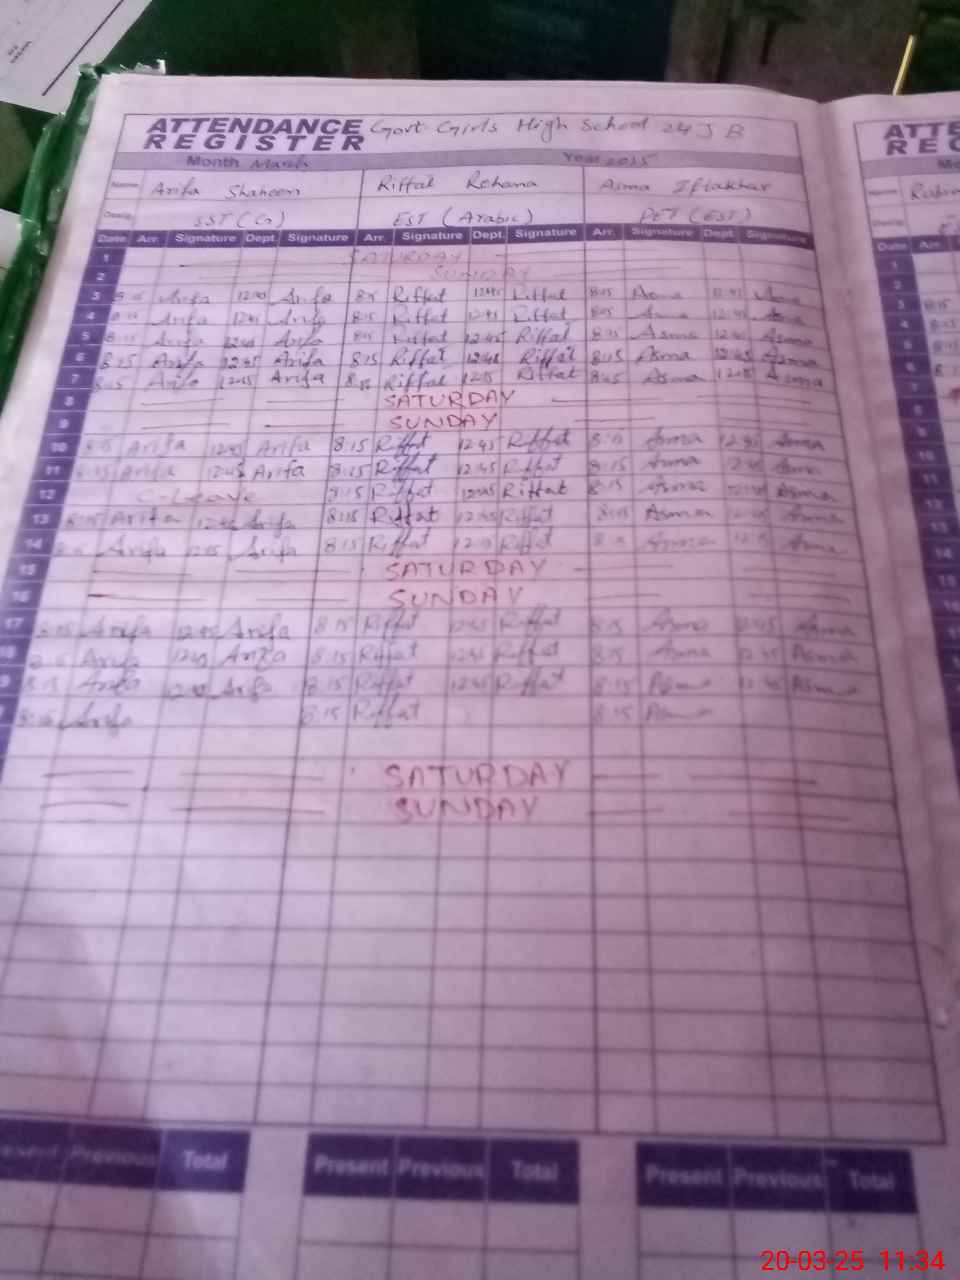 ATTENDANCE REGISTER Govt Girls High School 24 J B
Month March Year 2025
Name Arifa Shaheen Riffat Rehana Asma Iftakhar
Desig. SST(G) EST (Arabic) PET (EST)
Date Arr. Signature Dept Signature Arr. Signature Dept. Signature Arr. Signature Dept Signature
1 SATURDAY
2 SUNDAY
3 Arifa Arifa Riffat 12:45 Riffat 8:15 Asma 12:45 Asma
4 Arifa 12:45 Arifa 8:15 Riffat 12:45 Riffat Asma 12:45 Asma
5 8:15 Arifa 12:45 Arifa Riffat 12:45 Riffat 8:15 Asma 12:45 Asma
6 8:15 Arifa 12:45 Arifa 8:15 Riffat 12:45 Riffat 8:15 Asma 12:45 Asma
7 8:15 Arifa Arifa 8:15 Riffat Riffat Asma Asma
8 SATURDAY
9 SUNDAY
10 8:15 Arifa 12:45 Arifa 8:15 Riffat 12:45 Riffat 8:15 Asma 12:45 Asma
11 8:15 Arifa 12:45 Arifa 8:15 Riffat 12:45 Riffat 8:15 Asma 12:45 Asma
12 C-Leave 8:15 Riffat 12:45 Riffat 8:15 Asma 12:45 Asma
13 8:15 Arifa 12:45 Arifa 8:15 Riffat 12:45 Riffat 8:15 Asma 12:45 Asma
14 Arifa Arifa 8:15 Riffat Riffat Asma Asma
15 SATURDAY
16 SUNDAY
17 8:15 Arifa 12:45 Arifa 8:15 Riffat 12:45 Riffat 8:15 Asma 12:45 Asma
18 8:15 Arifa 12:45 Arifa 8:15 Riffat 12:45 Riffat 8:15 Asma 12:45 Asma
8:15 Arifa 12:45 Arifa 8:15 Riffat 12:45 Riffat 8:15 Asma 12:45 Asma
8:15 Arifa 8:15 Riffat 8:15 Asma
SATURDAY
SUNDAY
Previous Total Present Previous Total Present Previous Total
20-03-25 11:34